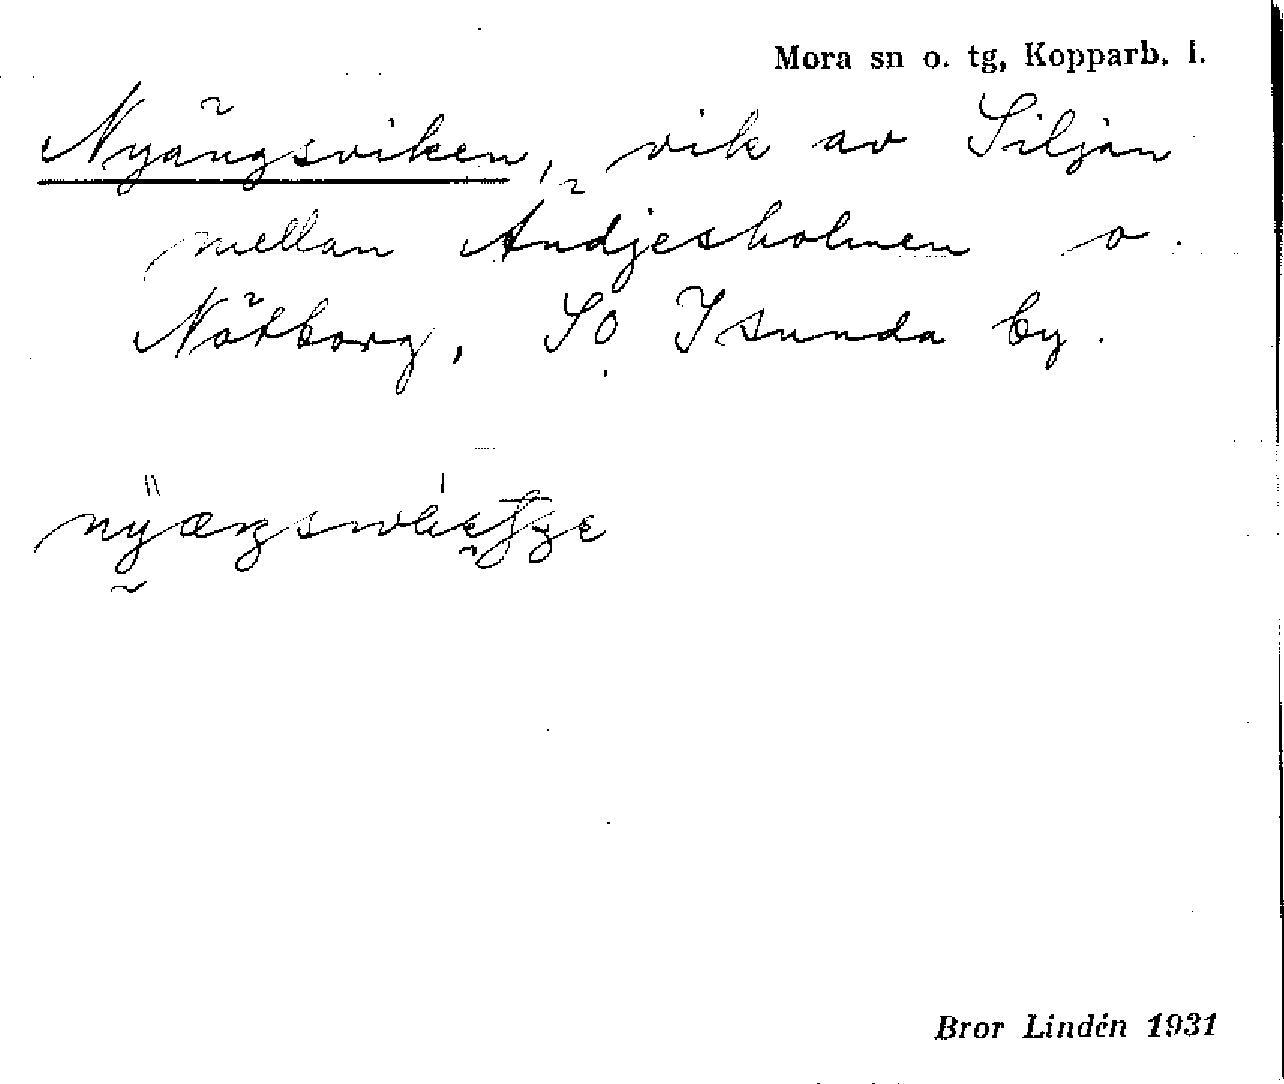 Mora sn o. tg, Kopparb. l.
Nyängsviken, vik av Siljan
mellan Ändjesholmen o.
Nötborg, SO Isunda by.
Bror Lindén 1931